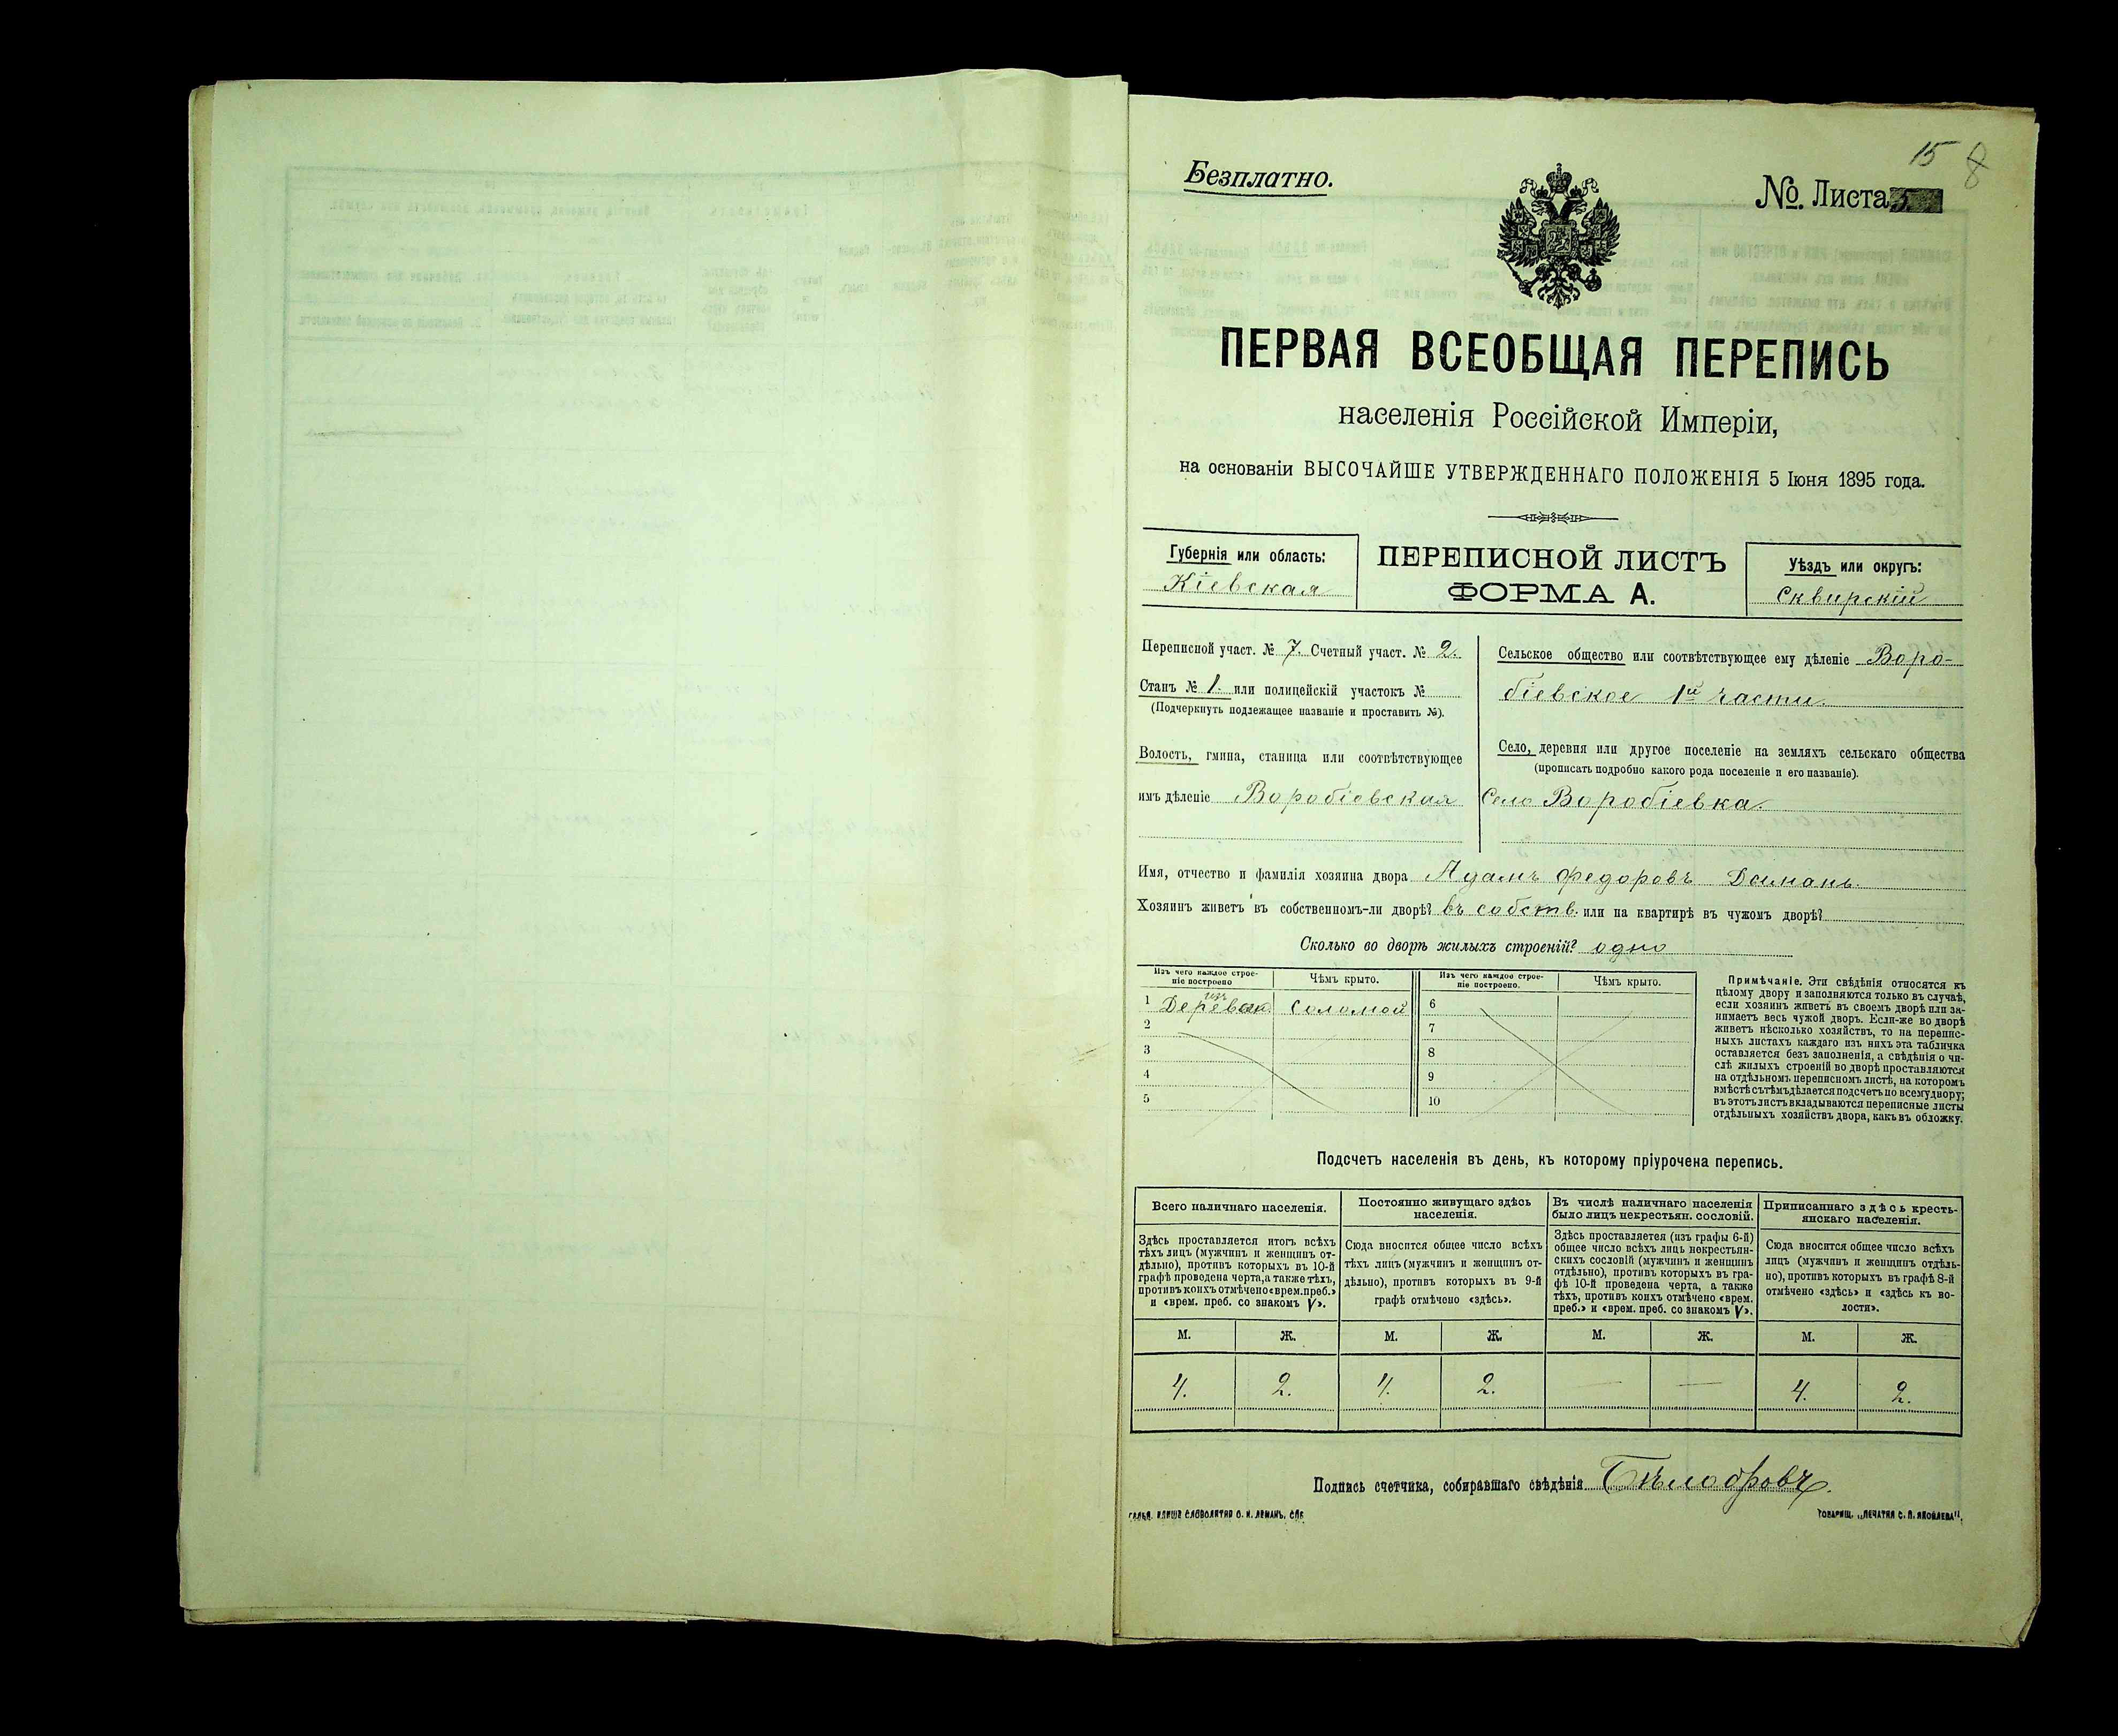 15 8
Безплатно.
№. Листа 5.
ПЕРВАЯ ВСЕОБЩАЯ ПЕРЕПИСЬ
населенія Россійской Имперіи,
на основаніи ВЫСОЧАЙШЕ УТВЕРЖДЕННАГО ПОЛОЖЕНІЯ 5 Іюня 1895 года.
Губернія или область:
Кіевская
ПЕРЕПИСНОЙ ЛИСТЪ
ФОРМА А.
Уѣздъ или округъ:
Сквирскій
Переписной участ. № 7. Счетный участ. № 2.
Станъ № 1. или полицейскій участокъ №
(Подчеркнуть подлежащее названіе и проставить №).
Волость, гмина, станица или соотвѣтствующее
имъ дѣленіе Воробіевская
Сельское общество или соотвѣтствующее ему дѣленіе Воро-
біевское 1й части.
Село, деревня или другое поселеніе на земляхъ сельскаго общества
(прописать подробно какого рода поселеніе и его названіе).
Село Воробіевка.
Имя, отчество и фамилія хозяина двора Адамъ Федоровъ
Хозяинъ живетъ въ собственномъ-ли дворѣ? въ собств. или на квартирѣ въ чужомъ дворѣ?
Сколько во дворѣ жилыхъ строеній? одно
Изъ чего каждое строе-
ніе построено
Чѣмъ крыто.
Изъ чего каждое строе-
ніе построено.
Чѣмъ крыто.
1 изъ Соломой
2
3
4
5
6
7
8
9
10
Примѣчаніе. Эти свѣдѣнія относятся къ
цѣлому двору и заполняются только въ случаѣ,
если хозяинъ живетъ въ своемъ дворѣ или за-
нимаетъ весь чужой дворъ. Если-же во дворѣ
живетъ нѣсколько хозяйствъ, то на перепис-
ныхъ листахъ каждаго изъ нихъ эта табличка
оставляется безъ заполненія, а свѣдѣнія о чи-
слѣ жилыхъ строеній во дворѣ проставляются
на отдѣльномъ переписномъ листѣ, на которомъ
вмѣстѣ съ тѣмъ дѣлается подсчетъ по всему двору;
въ этотъ листъ вкладываются переписные листы
отдѣльныхъ хозяйствъ двора, какъ въ обложку.
Подсчетъ населенія въ день, къ которому пріурочена перепись.
Всего наличнаго населенія.
Здѣсь проставляется итогъ всѣхъ
тѣхъ лицъ (мужчинъ и женщинъ от-
дѣльно), противъ которыхъ въ 10-й
графѣ проведена черта, а также тѣхъ,
противъ коихъ отмѣчено «врем. преб.»
и «врем. преб. со знакомъ V».
Постоянно живущаго здѣсь
населенія.
Сюда вносится общее число всѣхъ
тѣхъ лицъ (мужчинъ и женщинъ от-
дѣльно), противъ которыхъ въ 9-й
графѣ отмѣчено «здѣсь».
Въ числѣ наличнаго населенія
было лицъ некрестьян. сословій.
Здѣсь проставляется (изъ графы 6-й)
общее число всѣхъ лицъ некрестьян-
скихъ сословій (мужчинъ и женщинъ
отдѣльно), противъ которыхъ въ гра-
фѣ 10-й проведена черта, а также
тѣхъ, противъ коихъ отмѣчено «врем.
преб.» и «врем. преб. со знакомъ V».
Приписаннаго здѣсь кресть-
янскаго населенія.
Сюда вносится общее число всѣхъ
лицъ (мужчинъ и женщинъ отдѣль-
но), противъ которыхъ въ графѣ 8-й
отмѣчено «здѣсь» и «здѣсь къ во-
лости».
М. Ж. М. Ж. М. Ж. М. Ж.
4. 2. 4. 2. — — 4. 2.
Подпись счетчика, собиравшаго свѣдѣнія
СЛОВОЛИТНЯ О. И. ЛЕМАНЪ, СПБ
ТОВАРИЩ. „ПЕЧАТНЯ С. П. ЯКОВЛЕВА".